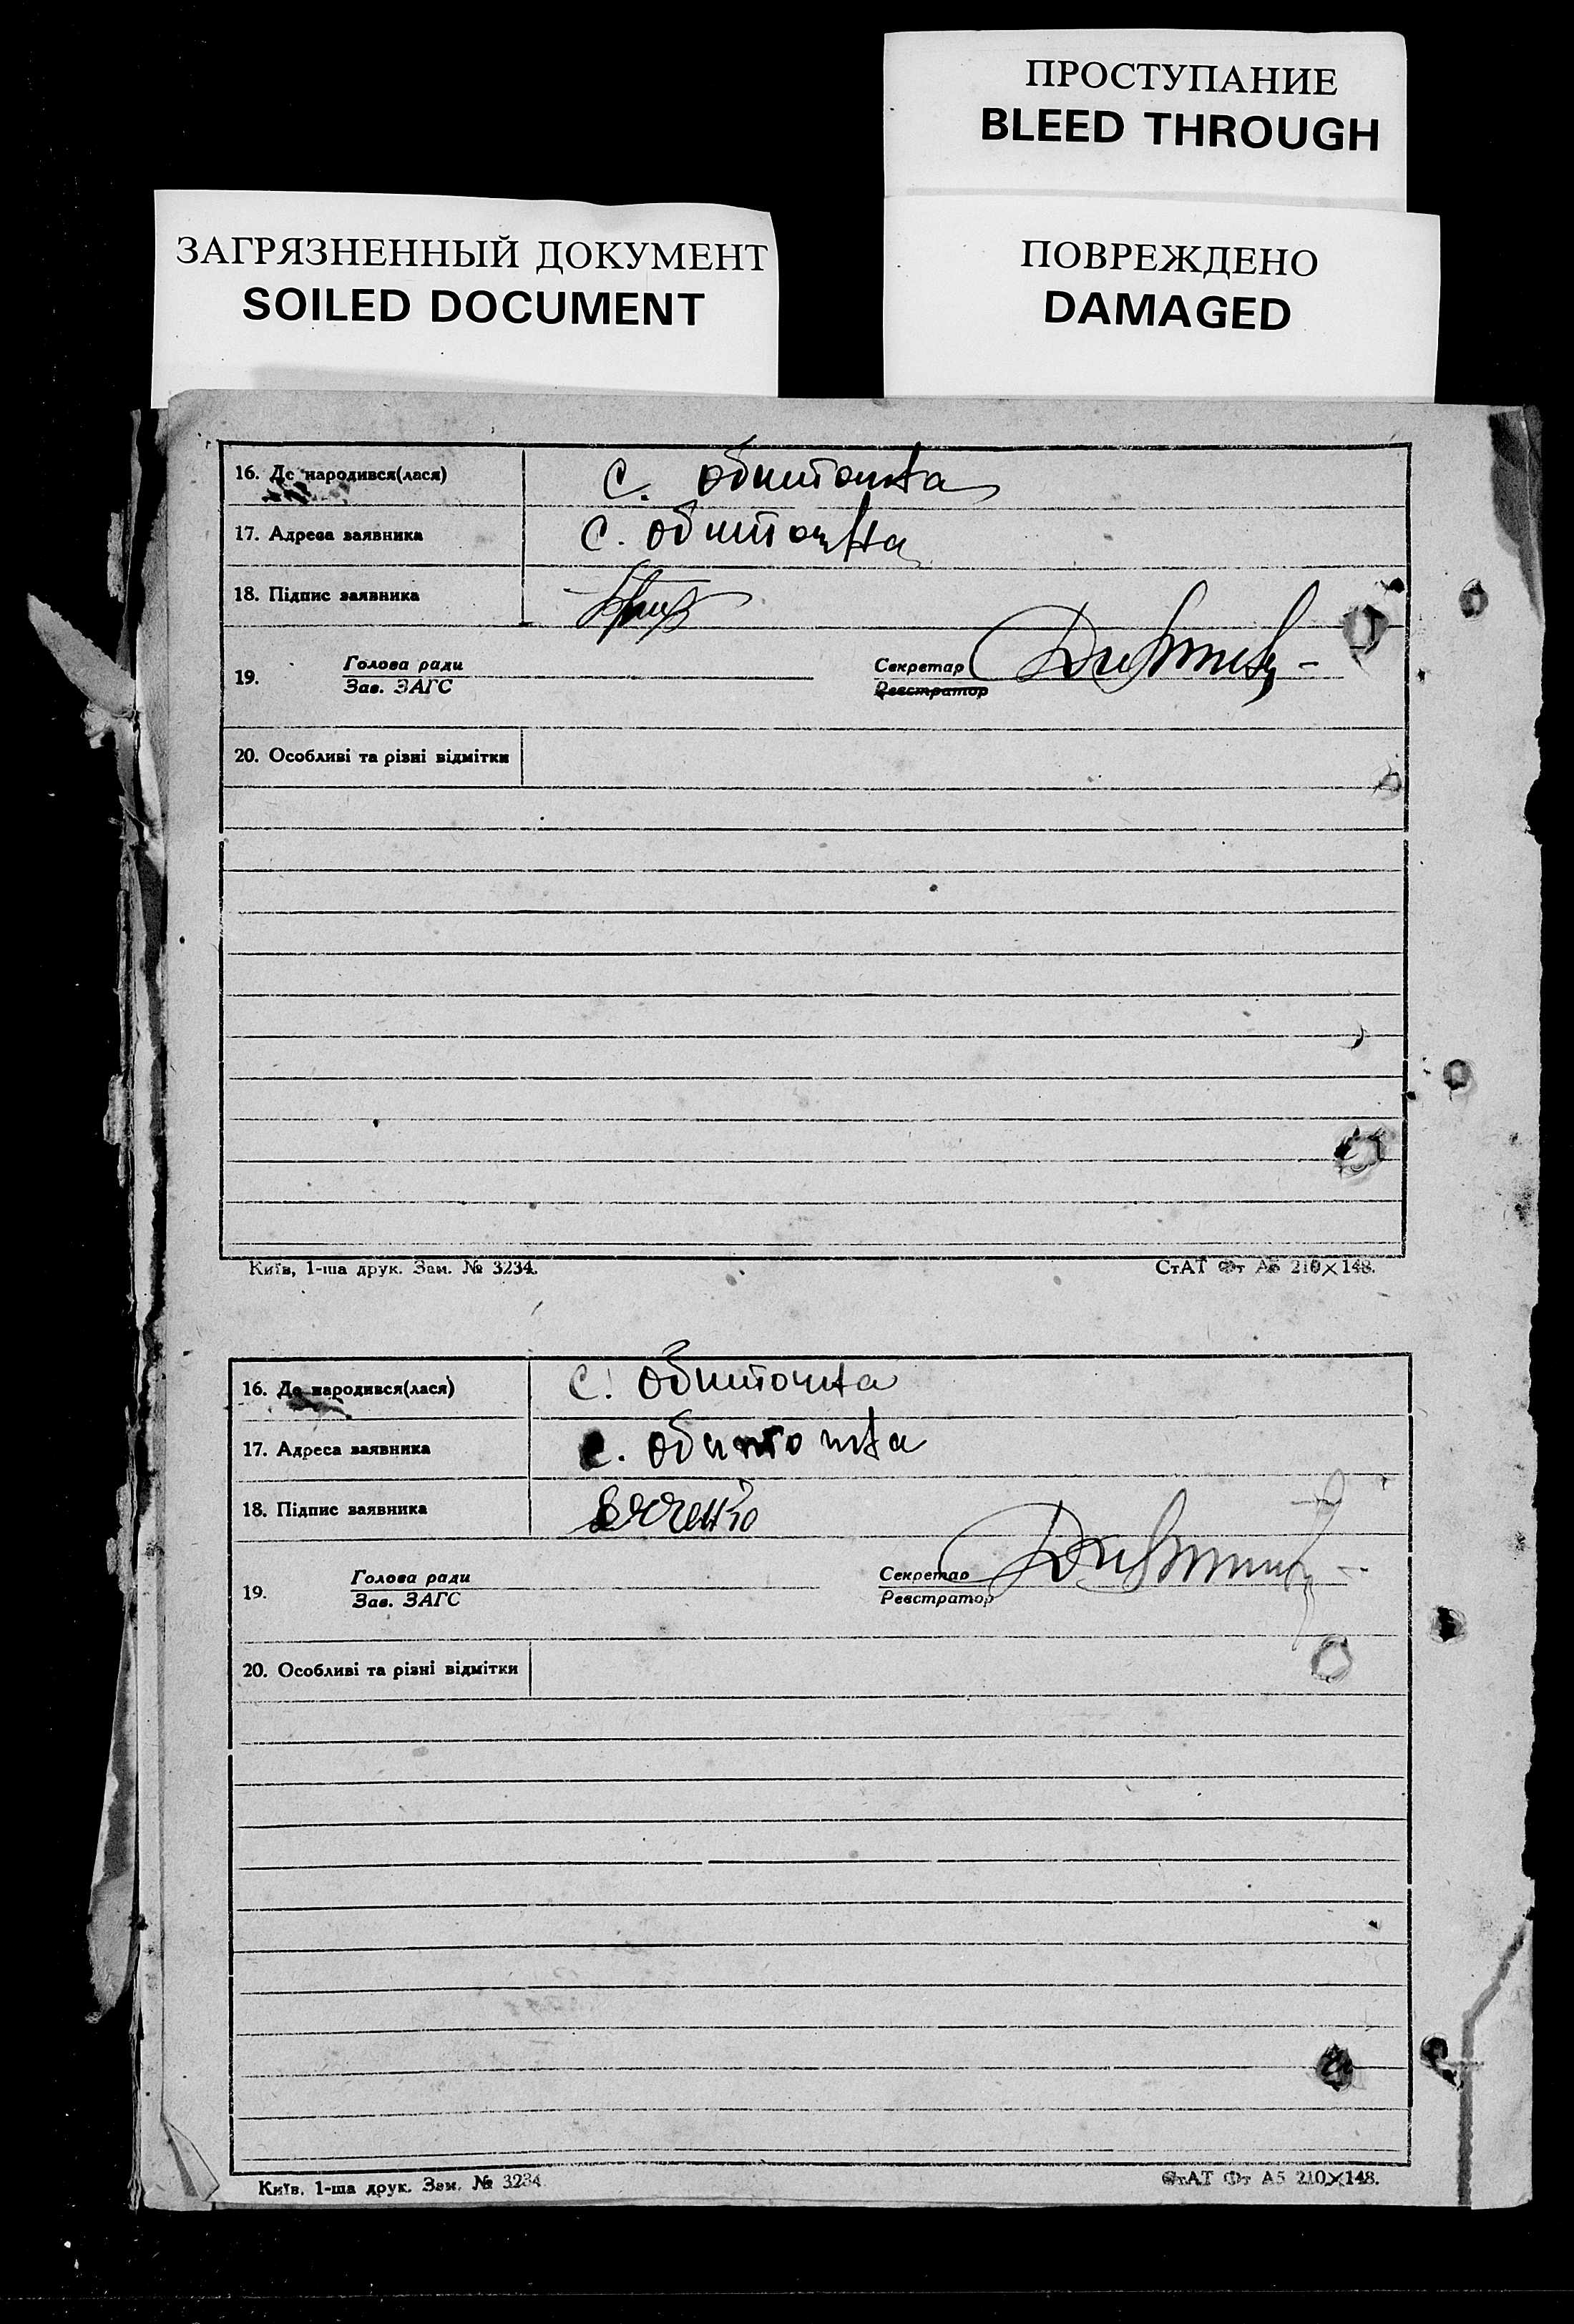 ПРОСТУПАНИЕ
BLEED THROUGH
ЗАГРЯЗНЕННЫЙ ДОКУМЕНТ
SOILED DOCUMENT
ПОВРЕЖДЕНО
DAMAGED
16. Де народився(лася) с. Обиточна
17. Адреса заявника с. Обиточна
18. Підпис заявника
19. Голова ради Секретар
Зав. ЗАГС Реєстратор
20. Особливі та різні відмітки
Київ, 1-ша друк. Зам. № 3234. СтАТ Фт А5 210×148.
16. Де народився(лася) с. Обиточна
17. Адреса заявника с. Обиточна
18. Підпис заявника
19. Голова ради Секретар
Зав. ЗАГС Реєстратор
20. Особливі та різні відмітки
Київ, 1-ша друк. Зам. № 3234 СтАТ Фт А5 210×148.